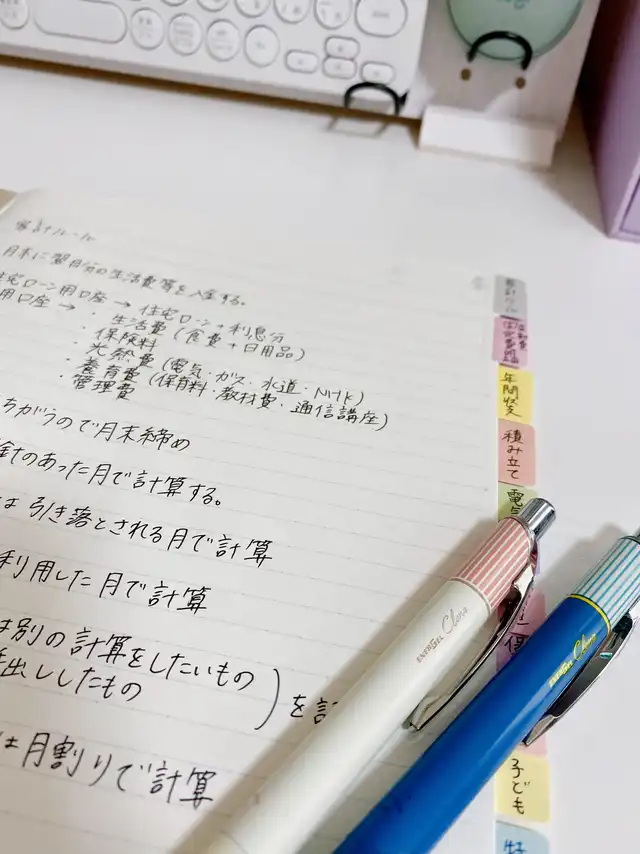 家計ルール
月末に翌月分の生活費等を入金する。
住宅ローン用口座 → 住宅ローン + 利息分
用口座 → ・生活費 (食費 + 日用品)
・保険料
・光熱費 (電気・ガス・水道・NHK)
・養育費 (保育料・教材費・通信講座)
・管理費
ちがうので月末締め
金のあった月で計算する。
は 引き落とされる月で計算
利用した月で計算
は別の計算をしたいもの
出ししたもの
) を
は月割りで計算
家計ルール
年間収支
積み立て
電気
子ども
ENERGEL Clena
ENERGEL Clena